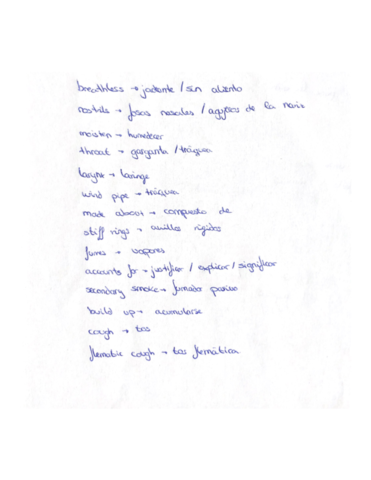 breathless → jadeante / sin aliento
nostrils → fosas nasales / agujeros de la nariz
moisten → humedecer
throat → garganta / tráquea
larynx → laringe
wind pipe → tráquea
made about → compuesto de
stiff rings → anillos rígidos
fumes → vapores
accounts for → justificar / explicar / significar
secondary smoke → fumador pasivo
build up → acumularse
cough → tos
flematic cough → tos flemática